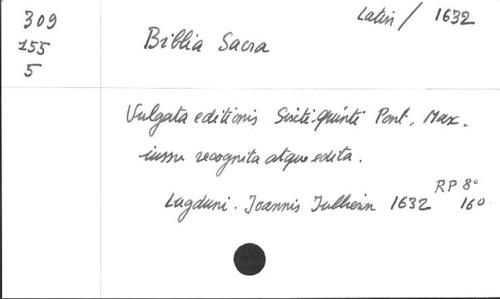 309
155
5
Latin / 1632
Biblia Sacra
Vulgata editionis Sixti Quinti Pont. Max.
iussu recognita atque edita.
Lugduni. Joannis Jullieron 1632
RP 8°
16°